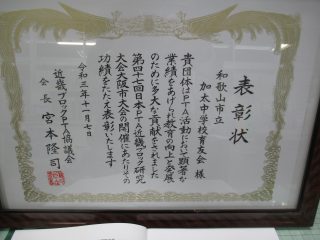 表彰状
和歌山市立
加太中学校育友会 様
貴団体はPTA活動において顕著な
業績をあげられ教育の向上と発展
のために多大な貢献をされました
第四十七回日本PTA近畿ブロック研究
大会大阪市大会の開催にあたりその
功績をたたえ表彰いたします
令和三年十一月七日
近畿ブロックPTA協議会
会長 宮本隆司